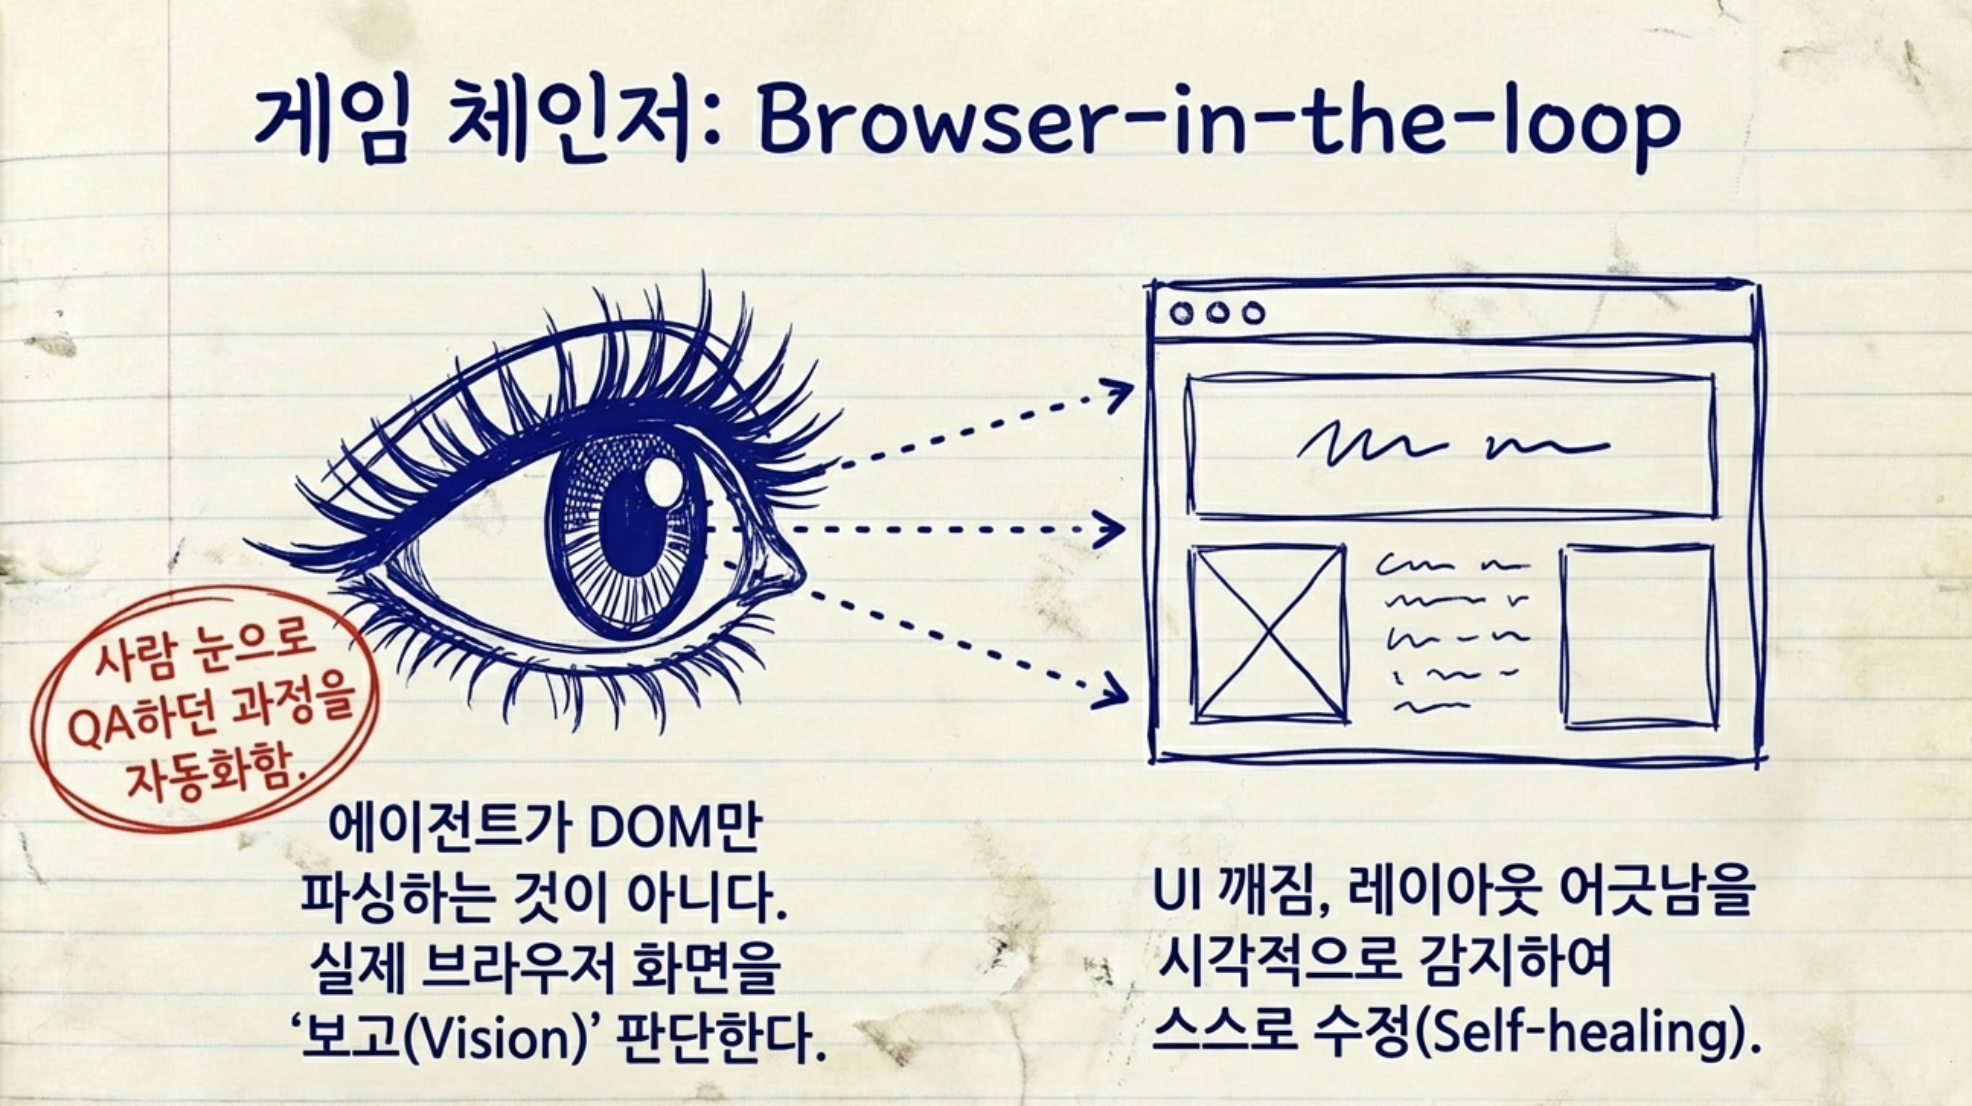 게임 체인저: Browser-in-the-loop
사람 눈으로
QA하던 과정을
자동화함.
에이전트가 DOM만
파싱하는 것이 아니다.
실제 브라우저 화면을
‘보고(Vision)’ 판단한다.
UI 깨짐, 레이아웃 어긋남을
시각적으로 감지하여
스스로 수정(Self-healing).